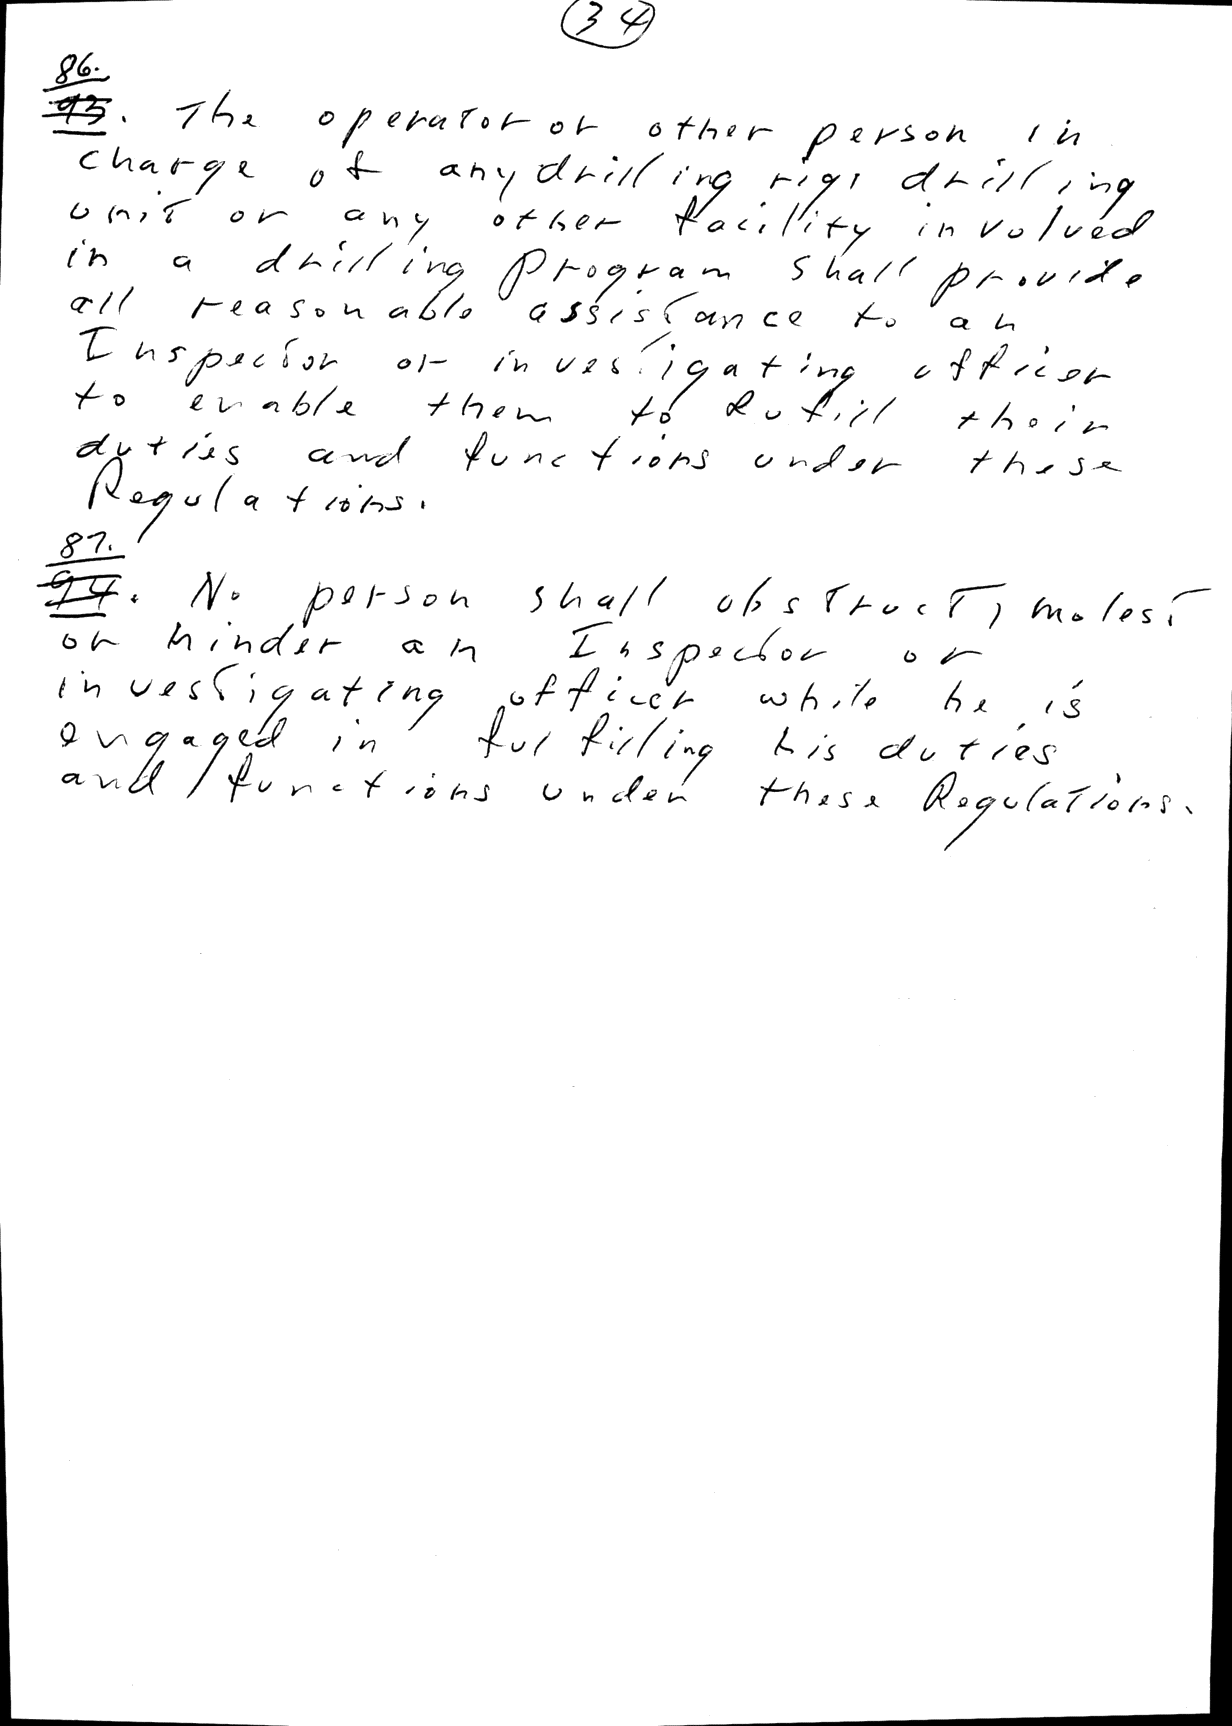 34
86.
93. The operator or other person in
charge of any drilling rig, drilling
unit or any other facility involved
in a drilling program shall provide
all reasonable assistance to an
Inspector or investigating officer
to enable them to fufill their
duties and functions under these
Regulations.
87.
94. No person shall obstruct, molest
or hinder an Inspector or
investigating officer while he is
engaged in fulfilling his duties
and functions under these Regulations.